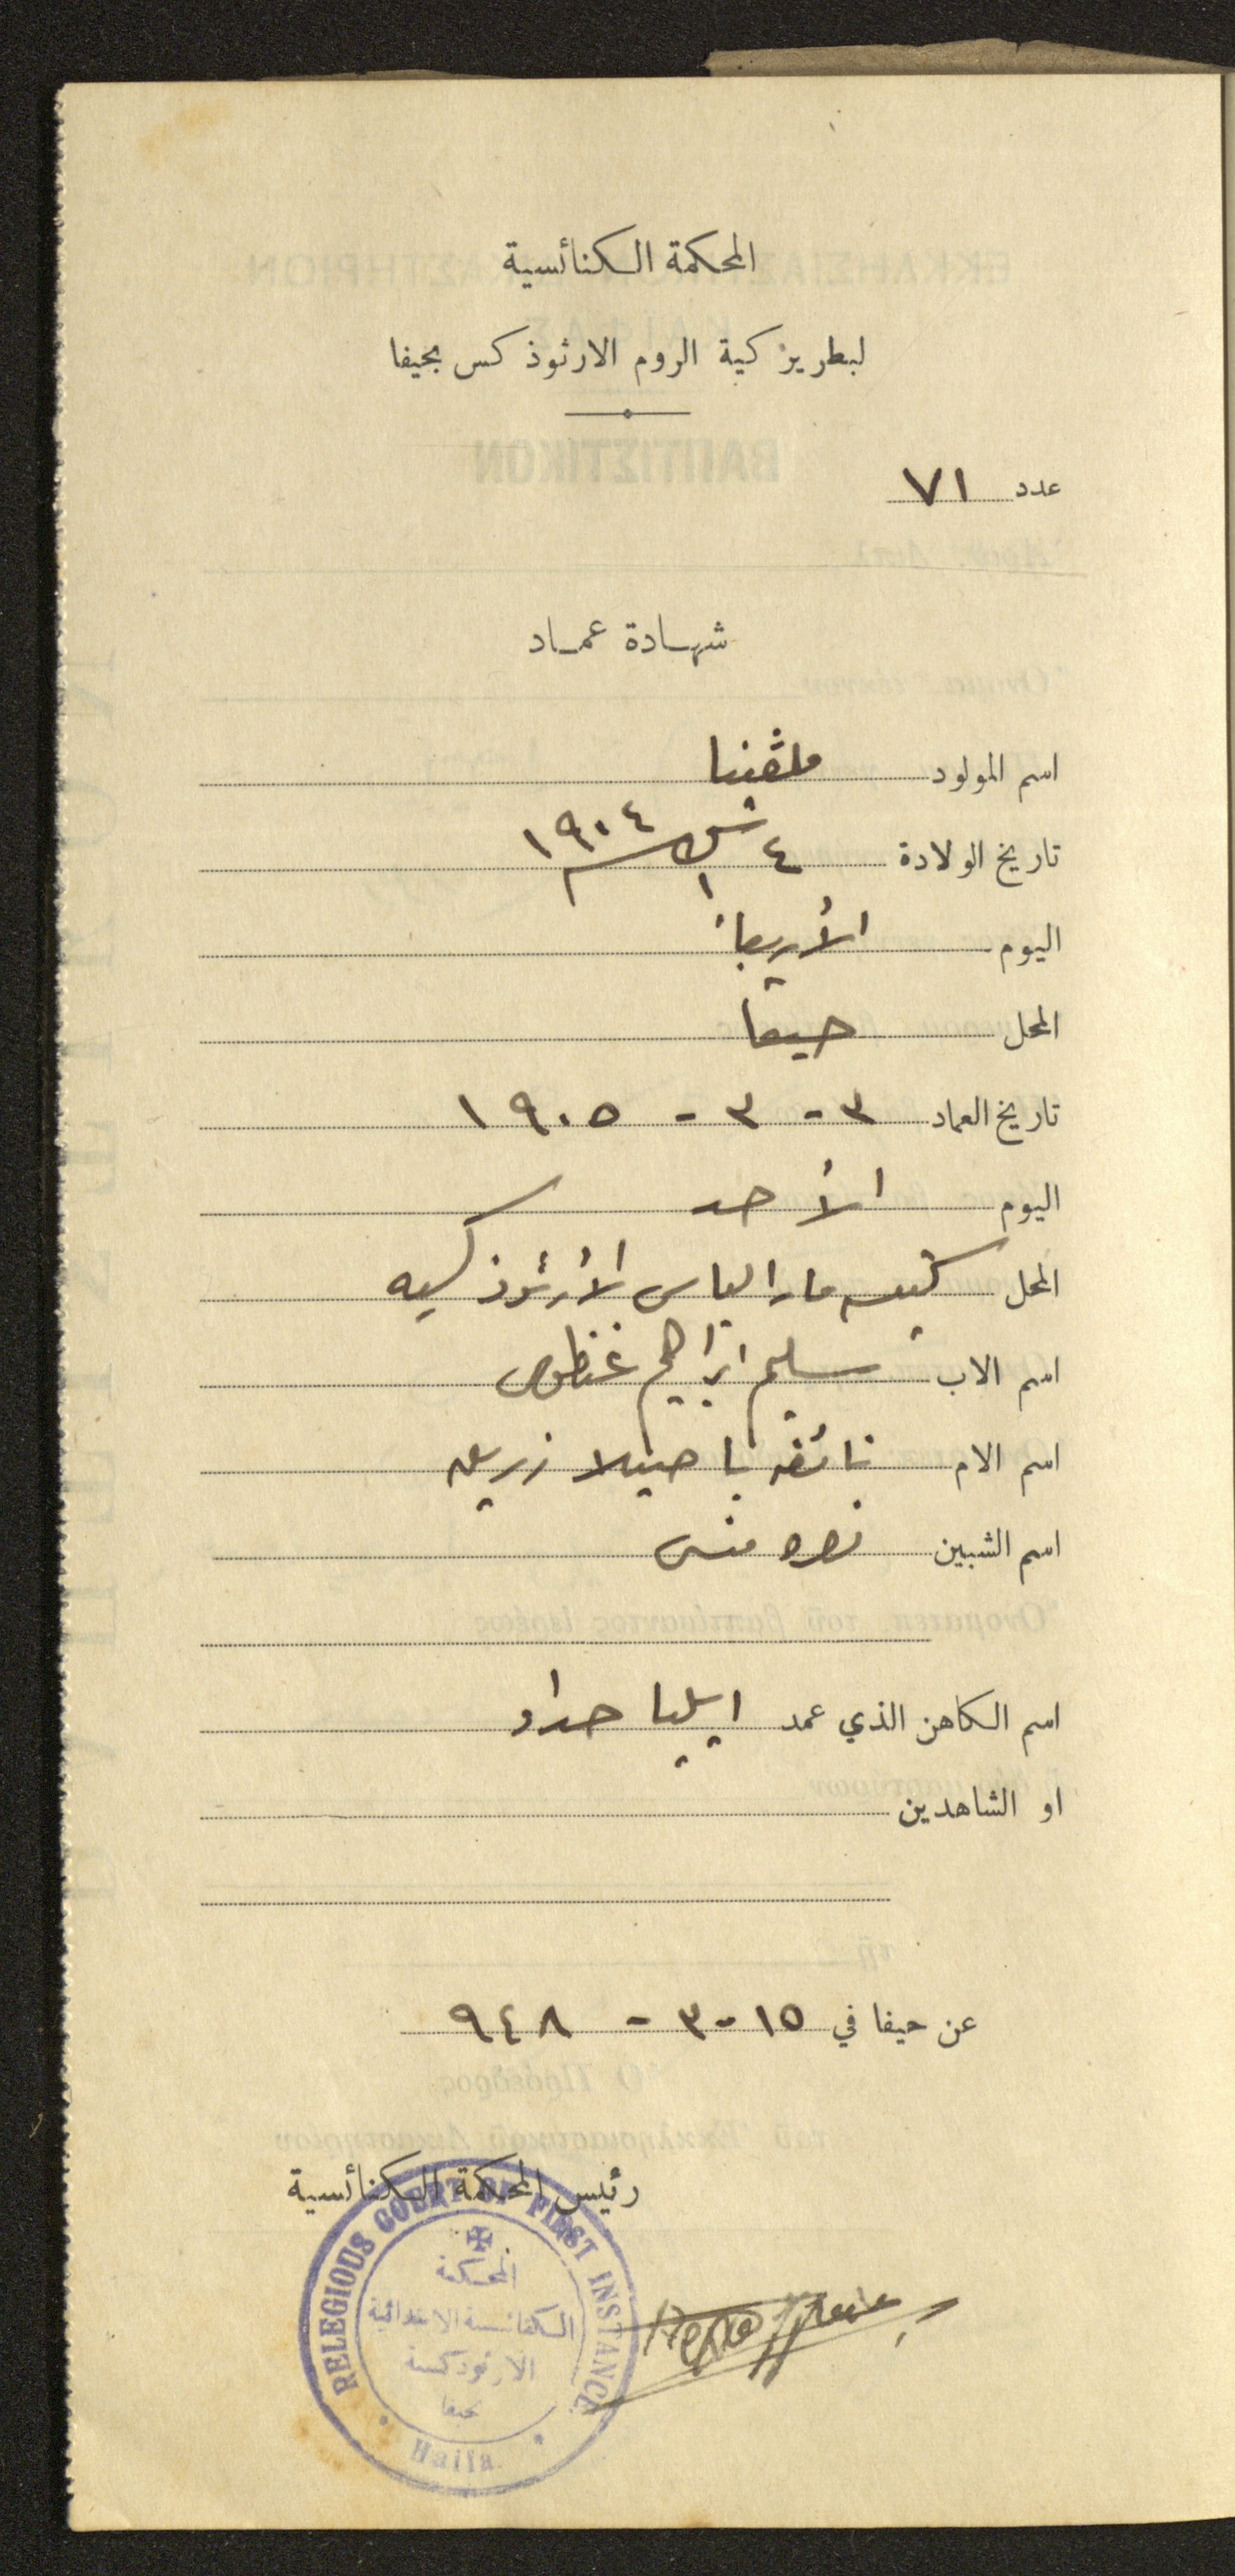 المحكمة الكنائسية
لبطريركية الروم الارثوذكس بحيفا
عدد ٧١
شهادة عماد
اسم المولود ملڤينا
تاريخ الولادة ٤ ت١ سنة ١٩٠٤
اليوم الأربعاء
المحل حيفا
تاريخ العماد ٣ - ٣ - ١٩٠٥
اليوم الأحد
المحل كنيسه مار الياس الأرثوذكسيه
اسم الاب سليم ابراهيم غنطوس
اسم الام نائفه باصيلا زريق
اسم الشبين نصره منسى
اسم الكاهن الذي عمد ايليا حداد
او الشاهدين
عن حيفا في ١٥ - ٣ - ٩٤٨
رئيس المحكمة الكنائسية
RELEGIOUS COURT OF FIRST INSTANCE
المحكمة
الكنائسية الابتدائية
الارثوذكسية
بحيفا
Haifa